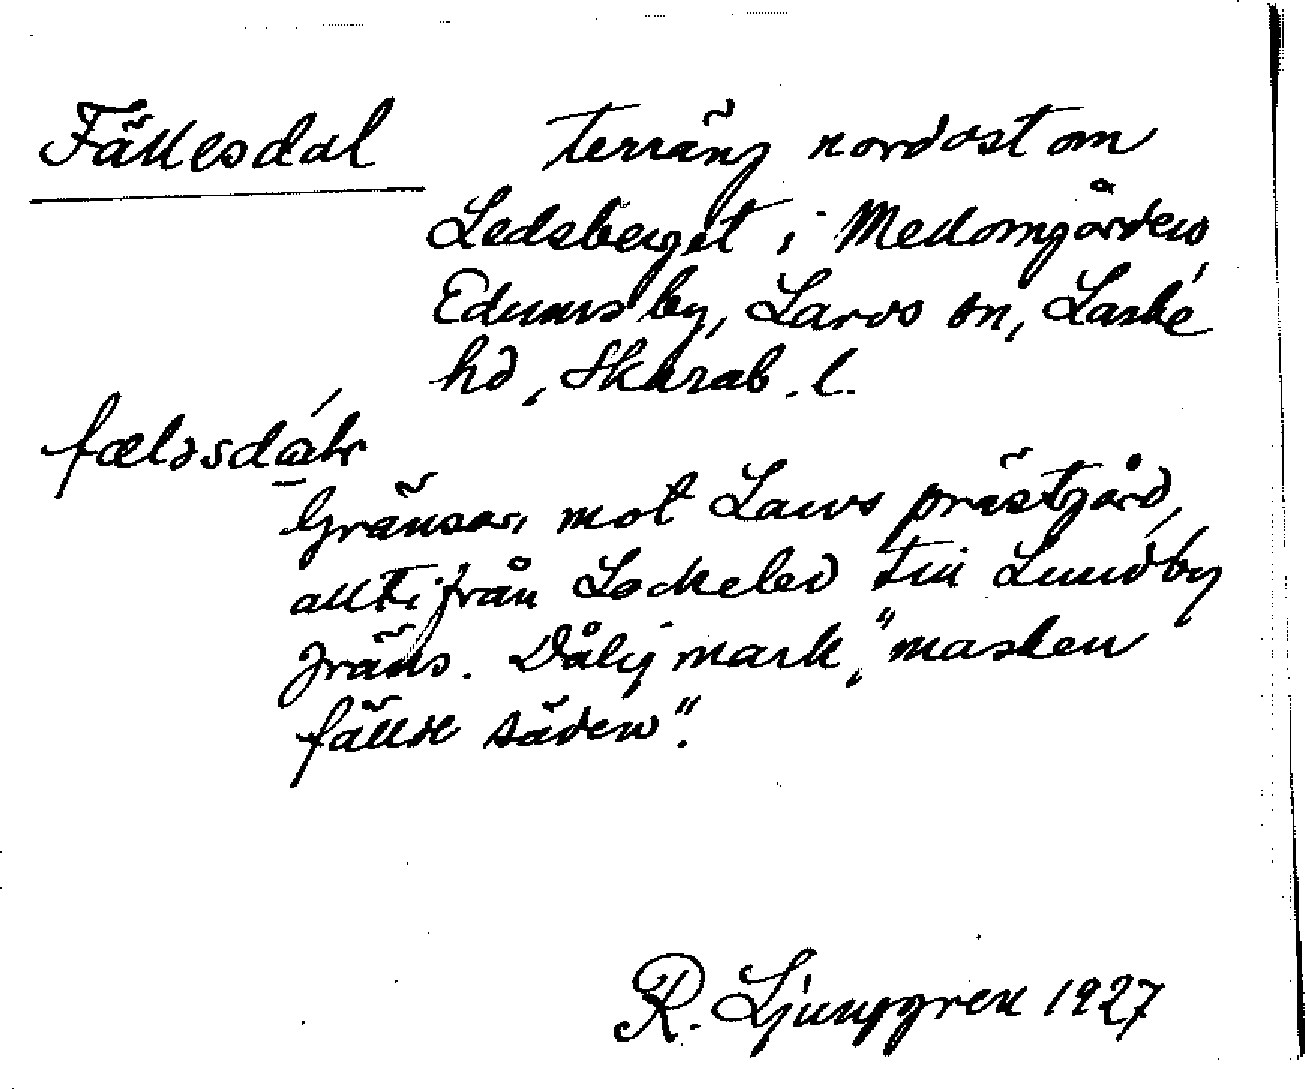 Fällesdal terräng nordost om
Ledsberget i Mellomgården
Edums by, Larvs sn, Laske
hd, Skarab. l.
fæləsdáɫ
Gränsar mot Larvs prästgård,
allt ifrån Lockeled till Lundby
gräns. Dålig mark, "masken
fällde säden".
R. Ljunggren 1927